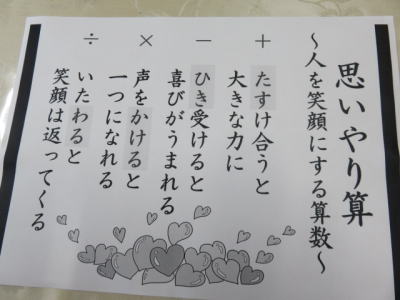 思いやり算
～人を笑顔にする算数～
＋
たすけ合うと
大きな力に
－
ひき受けると
喜びがうまれる
×
声をかけると
一つになれる
÷
いたわると
笑顔は返ってくる